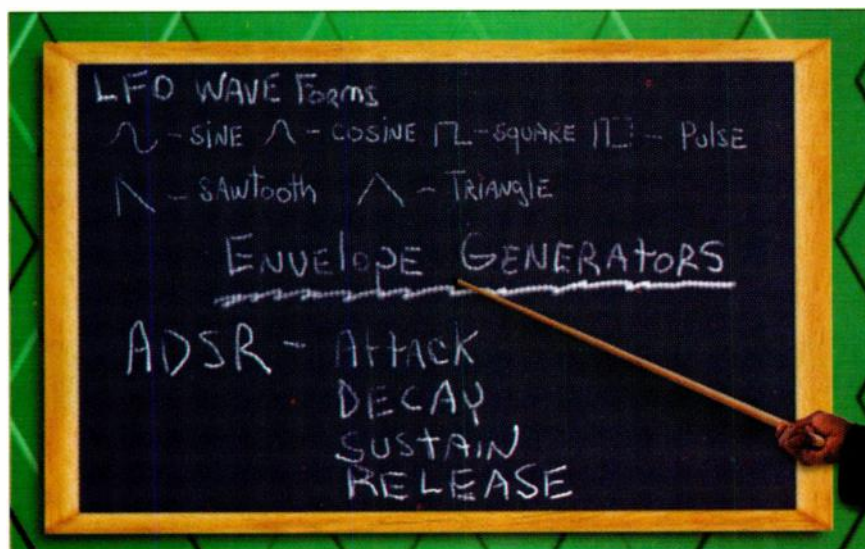 LFO WAVE Forms
- SINE - COSINE - SQUARE - Pulse
- SAWtooth - TRIANGLE
ENVElopE GENERATORS
ADSR - AttACK
DECAY
SUSTAIN
RELEASE